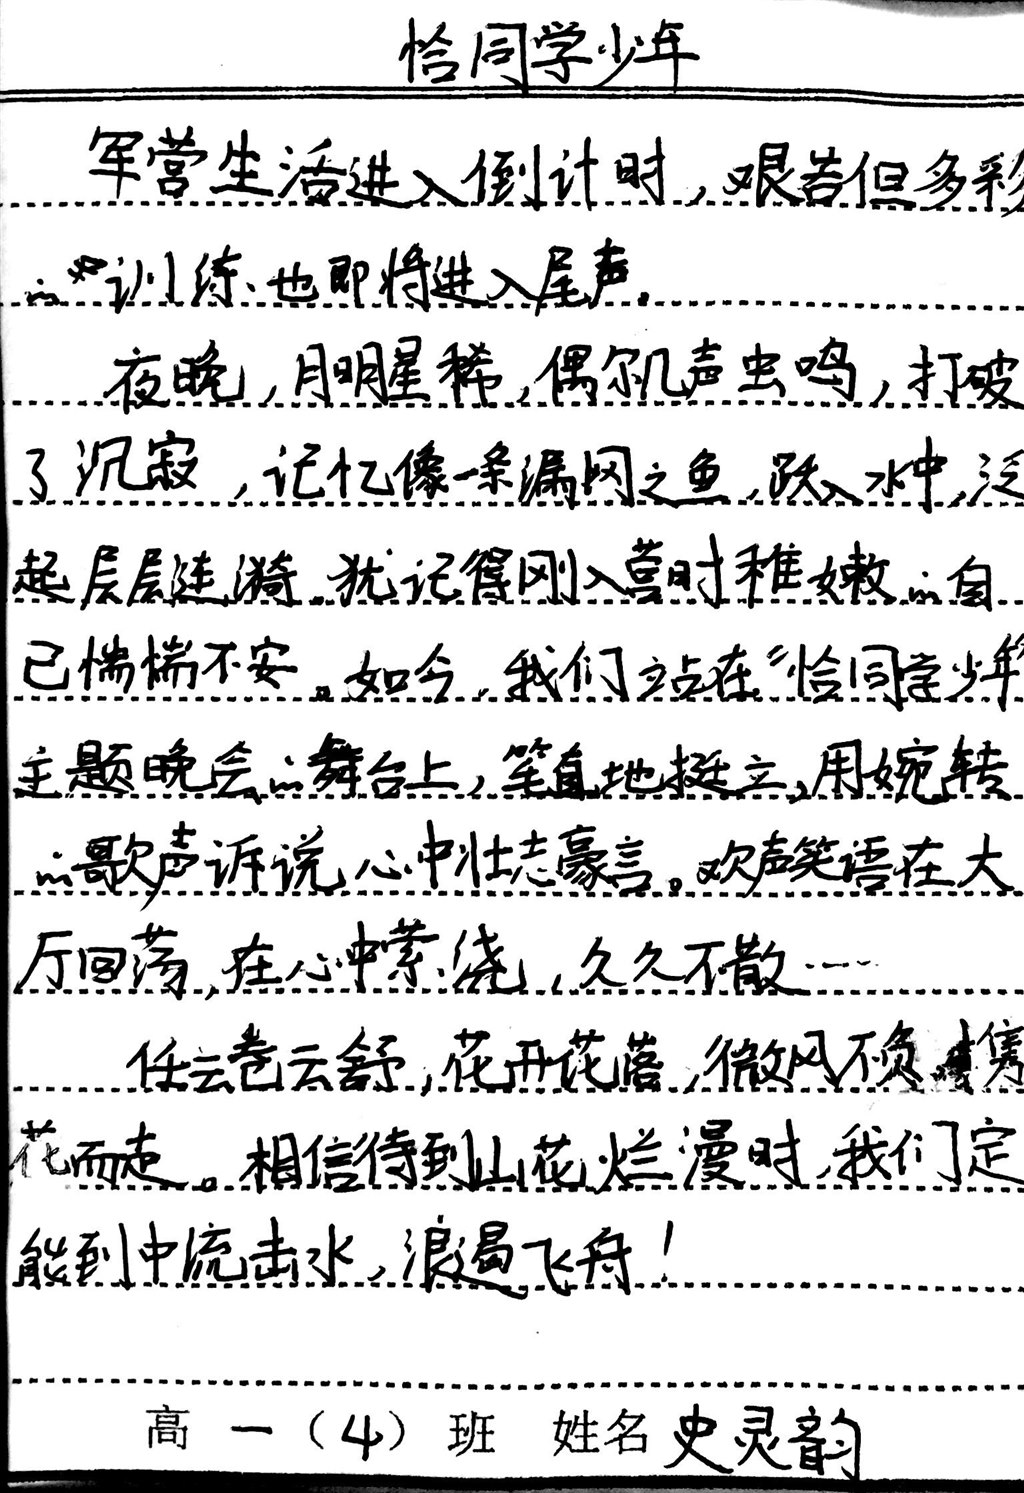 恰同学少年
军营生活进入倒计时，艰苦但多彩
的训练、也即将进入尾声。
夜晚，月明星稀，偶尔几声虫鸣，打破
了沉寂，记忆像一条漏网之鱼，跃入水中，泛
起层层涟漪。犹记得刚入营时稚嫩的自
己惴惴不安。如今，我们站在“恰同学少年”
主题晚会的舞台上，笔直地挺立，用婉转
的歌声诉说心中壮志豪言。欢声笑语在大
厅回荡，在心中萦绕，久久不散……
任云卷云舒，花开花落，微风不负，携
花而走。相信待到山花烂漫时，我们定
能到中流击水，浪遏飞舟！
高一（4）班 姓名 史灵韵